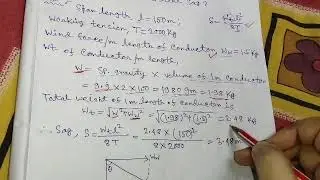 Span length l = 150m;
Working tension, T = 2000 kg
Wind force/m length of Conductor, Ww = 1.5 kg
Wt of Conductor/m length,
W = Sp. gravity x volume of 1m Conductor
= 9.9 x 2 x 100 = 1980 gm = 1.98 kg
Total weight of 1m length of Conductor is
Wt = √W²+Ww² = √(1.98)²+(1.5)² = 2.48 kg
∴ Sag, S = Wt l² / 8T = 2.48 x (150)² / 8 x 2000 = 3.48m